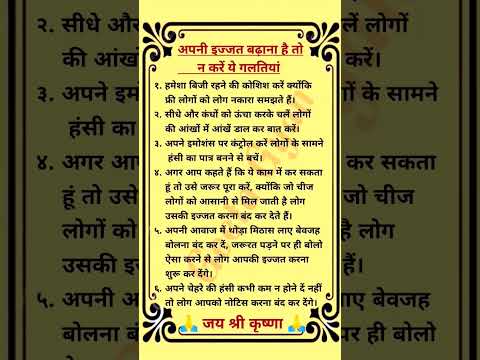 अपनी इज्जत बढ़ाना है तो
न करें ये गलतियां
१. हमेशा बिजी रहने की कोशिश करें क्योंकि
फ्री लोगों को लोग नकारा समझते हैं।
२. सीधे और कंधों को ऊंचा करके चलें लोगों
की आंखों में आंखें डाल कर बात करें।
३. अपने इमोशंस पर कंट्रोल करें लोगों के सामने
हंसी का पात्र बनने से बचें।
४. अगर आप कहते हैं कि ये काम में कर सकता
हूं तो उसे जरूर पूरा करें, क्योंकि जो चीज
लोगों को आसानी से मिल जाती है लोग
उसकी इज्जत करना बंद कर देते हैं।
५. अपनी आवाज में थोड़ा मिठास लाए बेवजह
बोलना बंद कर दें, जरूरत पड़ने पर ही बोलो
ऐसा करने से लोग आपकी इज्जत करना
शुरू कर देंगे।
६. अपने चेहरे की हंसी कभी कम न होने दें नहीं
तो लोग आपको नोटिस करना बंद कर देंगे।
🙏 जय श्री कृष्णा 🙏
२. सीधे और
लोगों
की आंखों
करें।
३. अपने इम
के सामने
हंसी का
४. अगर आप
कर सकता
हूं तो उसे
जो चीज
लोगों को
लोग
उसकी इ
हैं।
५. अपनी आ
ए बेवजह
बोलना बं
पर ही बोलो